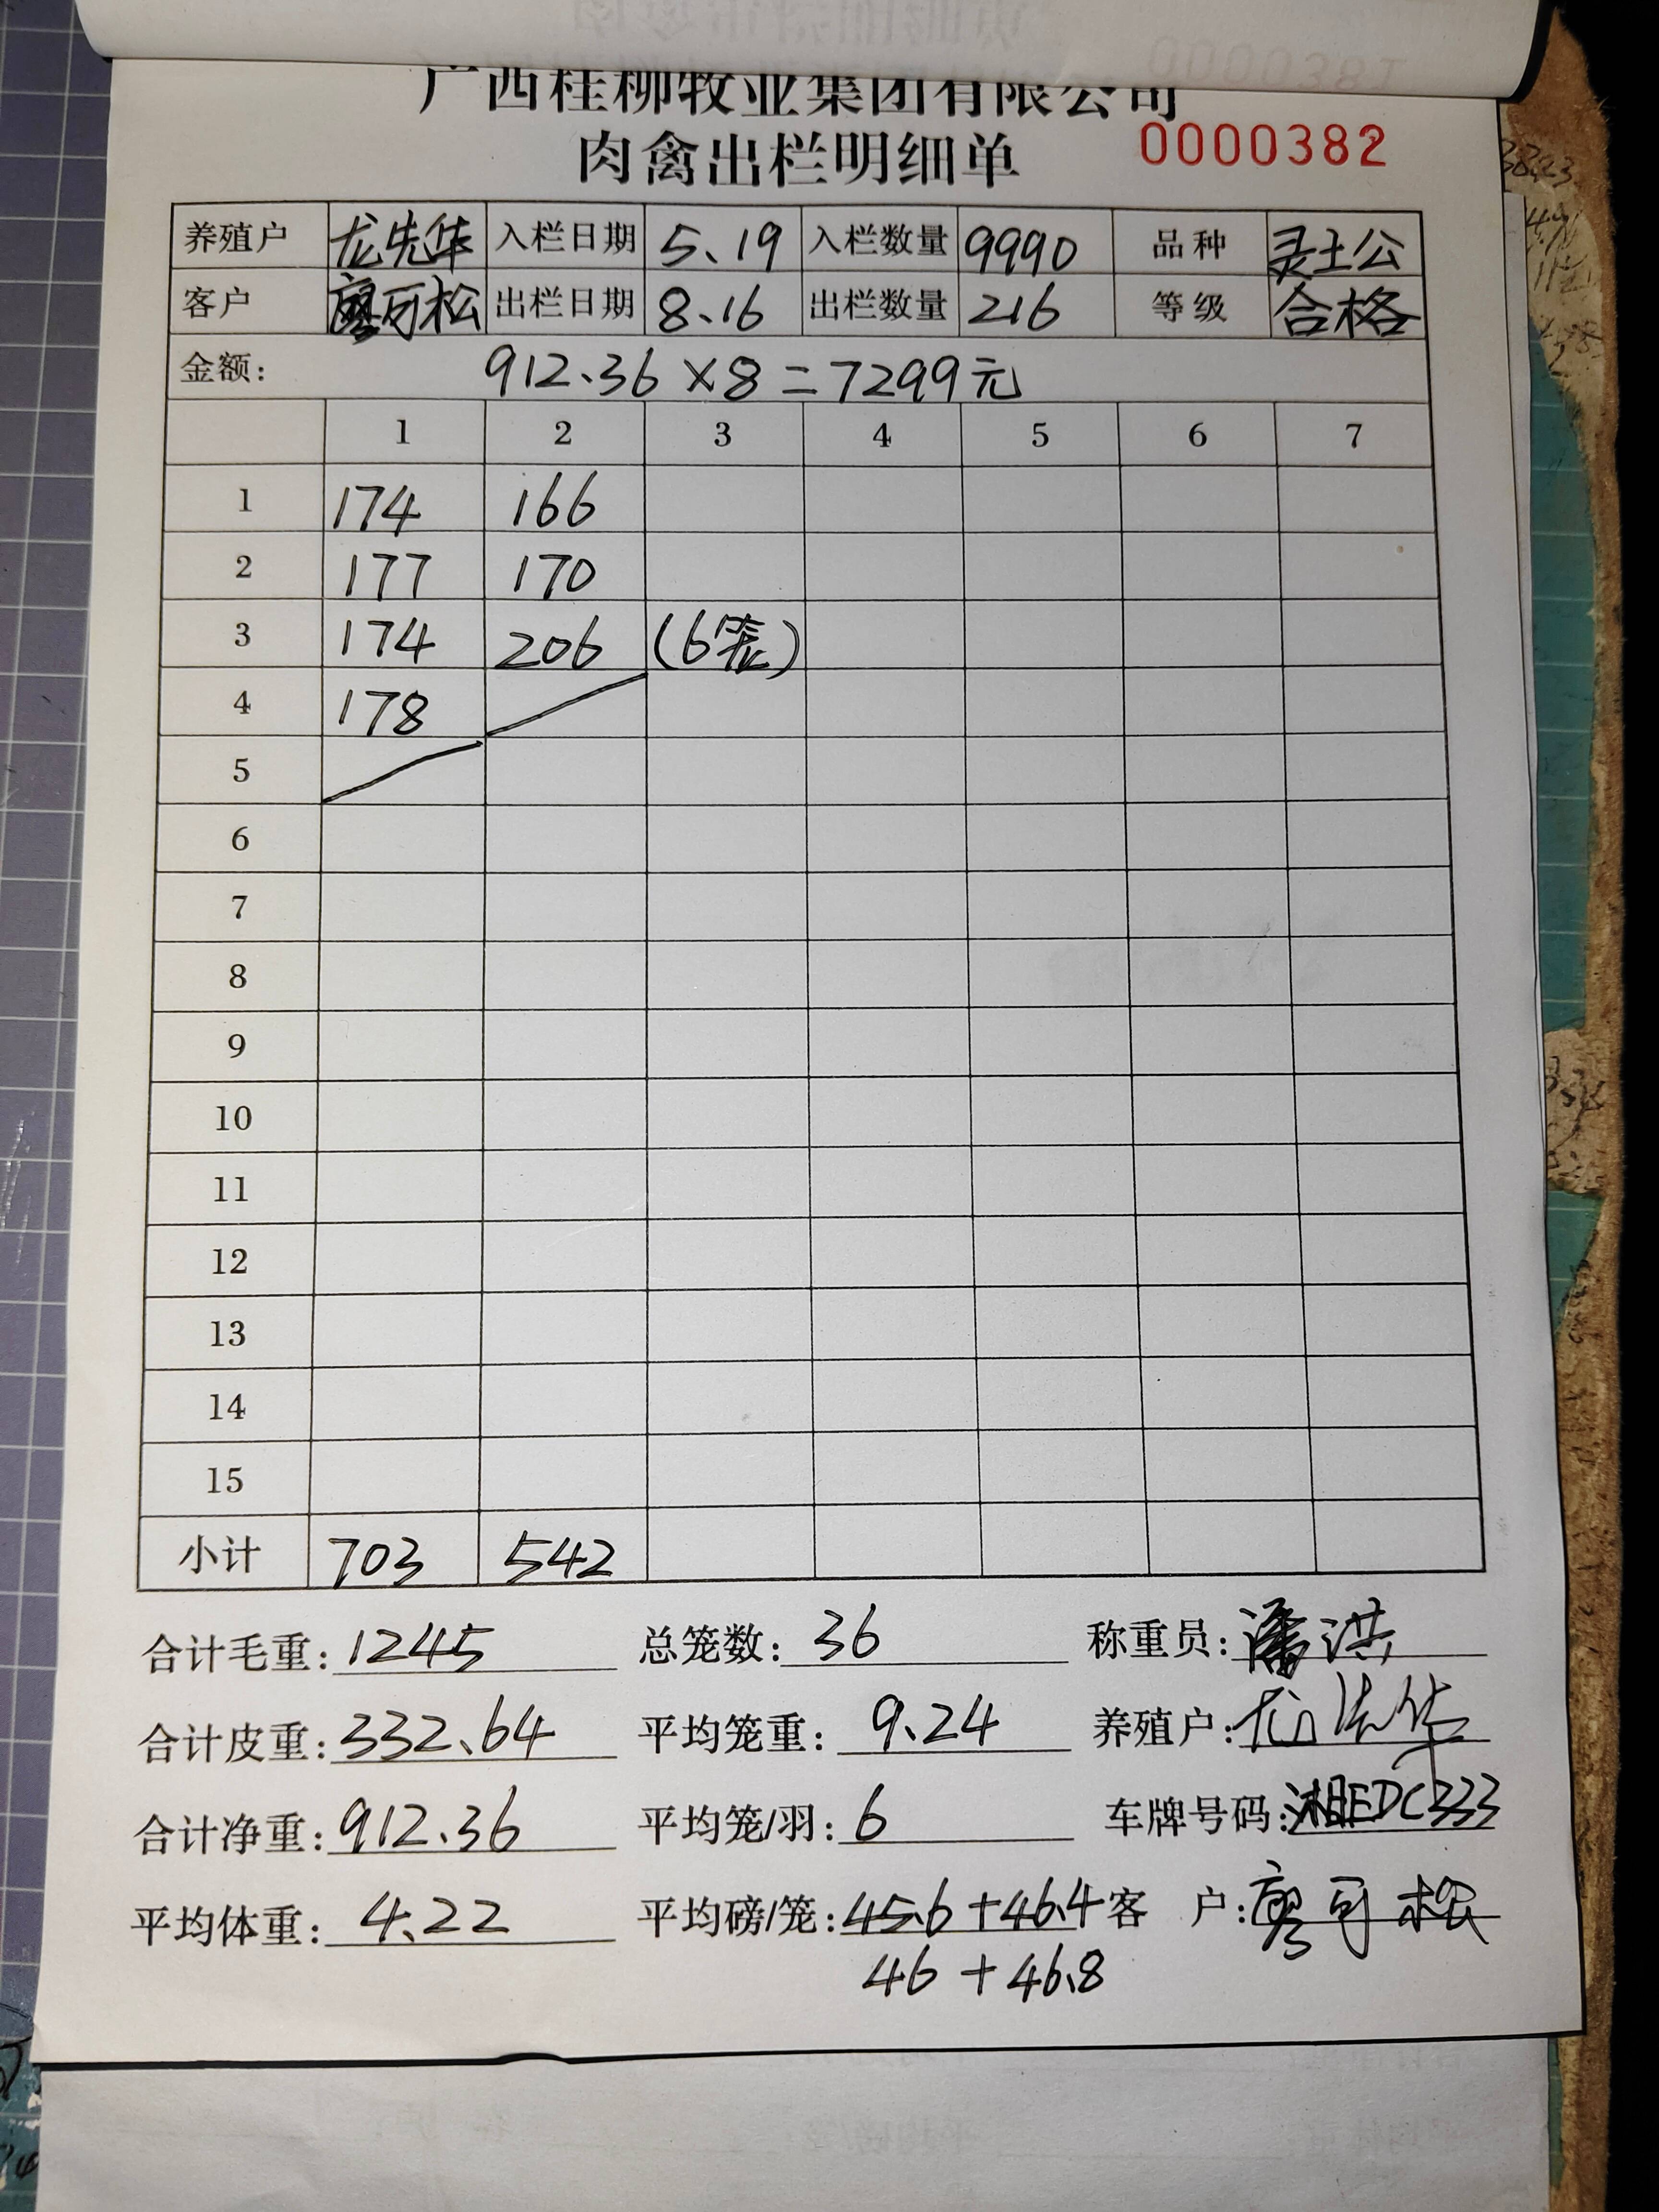 广西桂柳牧业集团有限公司
肉禽出栏明细单 0000382
养殖户 龙先华 入栏日期 5、19 入栏数量 9990 品种 灵土公
客户 廖可松 出栏日期 8、16 出栏数量 216 等级 合格
金额: 912、36×8=7299元
1 2 3 4 5 6 7
1 174 166
2 177 170
3 174 206 (6笼)
4 178
5
6
7
8
9
10
11
12
13
14
15
小计 703 542
合计毛重: 1245 总笼数: 36 称重员: 潘洪
合计皮重: 332、64 平均笼重: 9、24 养殖户: 龙先华
合计净重: 912、36 平均笼/羽: 6 车牌号码: 湘EDC333
平均体重: 4、22 平均磅/笼: 45、6+46、4 客 户: 廖可松
46+46、8